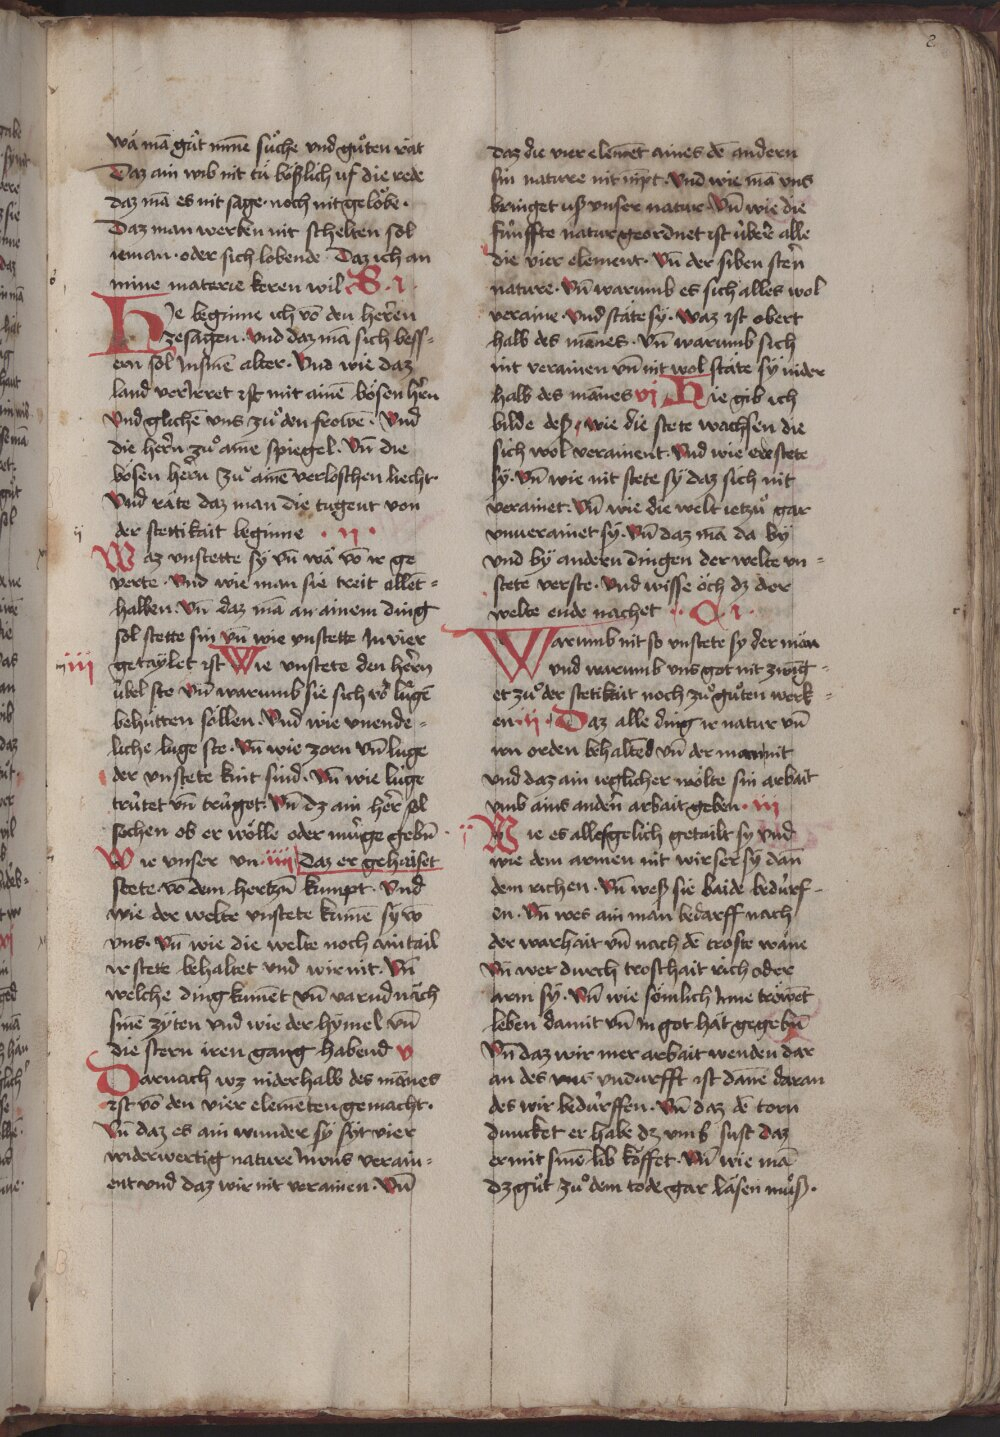 2
wā mā gůt minne sůche vnd gůten rāt
Daz ain wib nit tů bößlich uf die rede
daz mā es nit sage · noch nit gelobe ·
Daz man werben nit schelten sol
ieman · oder sich lobende Daz ich an
mine materie keren wil B · I ·
Hie beginne ich vō den herēn
zesagen · vnd daz mā sich bess-
ern sol In sinē alter · Vnd wie daz
land verirret ist mit ainē bösen hr̄n
Vnd glichen vns zů den frowē · Vnd
die herñ zů aine spiegel · Vn̄ die
bösen herñ zů ainē verloschen liecht
Vnd rāte daz man die tugent von
der stettikait beginne · II ·
Waz vnstette sy vn̄ wā vō ir ge
verte · Vnd wie man sie treit allēt-
halben Vn̄ daz mā an ainem ding
sol stette sin vn̄ wie vnstette In vier
getaylet ist Wie vnstete den herēn
übel ste Vn̄ warumb sie sich vor lugē
behütten söllen · Vnd wie vnende-
liche luge ste · Vn̄ wie zorn vn̄ luge
der vnstete kint sind · Vn̄ wie luge
trütet vn̄ trügot Vn̄ dz ain herē sol
sochen ob er wölle oder müge gebn̄
Wie vnser vn · IIII Daz er gehaiset
stete · vō dem hertzn̄ kumpt · Vnd
wie der welte vnstete kumē sy vō
vns · Vn̄ wie die welte noch ain tail
ir stete behaltet vnd wir nit · Vn̄
welche ding kumēt vn̄ varnd nāch
sinē zyten vnd wie der hymel vn̄
die stern iren gang habend V
Darnach wz niderhalb des mānes
ist vō den vier elemēten gemacht ·
Vn̄ daz es ain wunder sy syt vier
widerwertig nature In vns verain-
ent vnd daz wir nit verainen · Vn̄
daz die vier elemēt aines dē andern
sin nature nit nīpt · Vnd wie mā vns
bringet uß vnser natur · Vn̄ wie die
fünffte natur geordnet ist überē alle
die vier element · Vn̄ der siben sterñ
nature · Vn̄ warumb es sich alles wol
veraine · Vnd stāte sy · Waz ist obert
halb des mānes · Vn̄ warumb sich
nit verainen vn̄ nit wol stāte sy nider
halb des mānes VI Hie gib ich
bilde deß wie die stete wachsen die
sich wol verainent · Vnd wie ee stete
sy · Vn̄ wie nit stete sy daz sich nit
verainet · Vn̄ wie die welt ietzů gar
vnuerainet sy · Vn̄ daz mā da by
vnd by andern dingen der welte vn-
stete verste · Vnd wisse öch dz der
welte ende nachet · C · I ·
Warumb nit so vnstete sy der man
vnd warumb vns got nit zwīg-
et zů der stetikait noch zů gůten werk-
en · II · Daz alle ding ir natur vn̄
irn orden behaltēd vn̄ der man nit
vnd daz ain ieglicher wölte sin arbait
vmb ains anderñ arbait geben · III
Wie es alles gelich getailt sy vnd
wie dem armen nit wirser sy dan̄
dem richen · Vn̄ weß sie baide bedürf-
en · Vn̄ wes ain man bedarff nach
der warhait vn̄ nach dē troste wāne
Vn̄ wer durch trosthait rich oder
arm sy · Vn̄ wie sömlich Inne tröwēt
leben damit vn̄ In got hāt gegebn̄
Vn̄ daz wir mer arbait wenden dar
an des vns vndurfft ist danē daran
des wir bedürffen · Vn̄ daz dē torn
duncket er habe dz vmb sust daz
er mit sinē lib köffet · Vn̄ wie mā
dz gůt zů dem tode gar lāsen můß ·